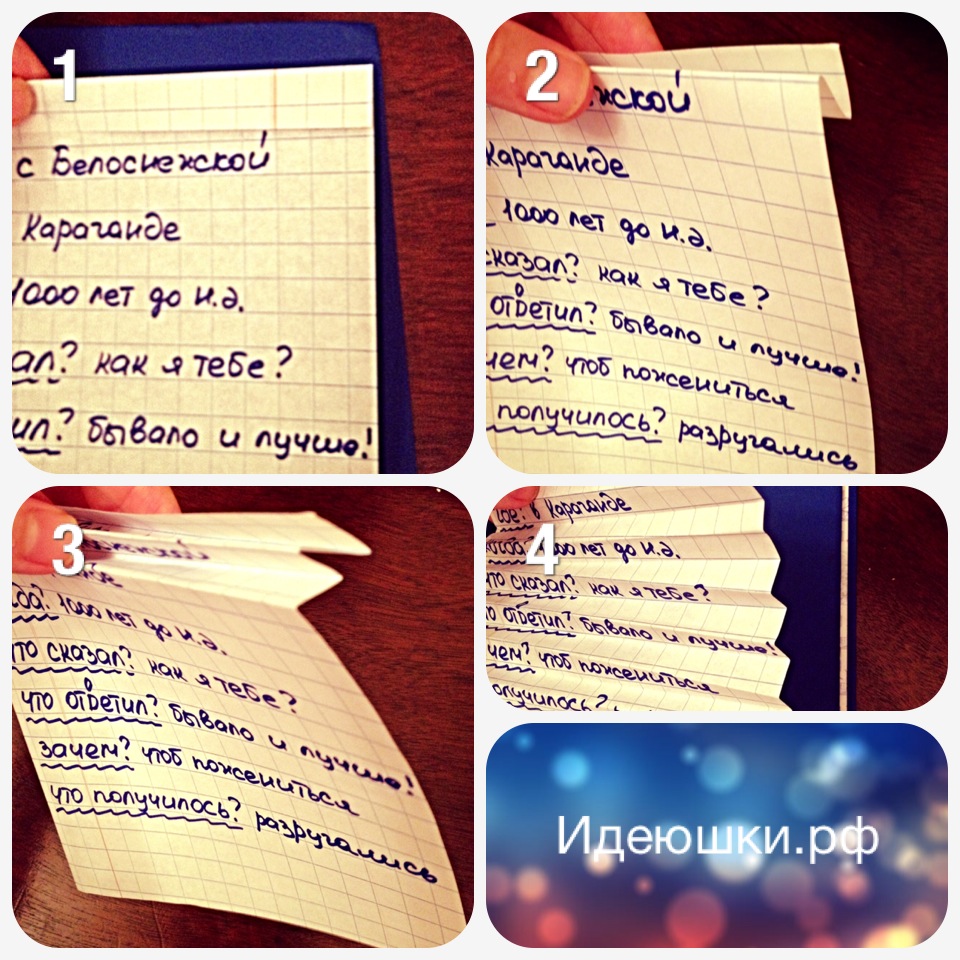 1
с Белоснежской
Караганде
1000 лет до н.э.
ал? как я тебе?
ил? бывало и лучше!
2
жской
Караганде
1000 лет до н.э.
сказал? как я тебе?
ответил? бывало и лучше!
чем? чтоб пожениться
получилось? разругались
3
1000 лет до н.э.
что сказал? как я тебе?
что ответил? бывало и лучше!
зачем? чтоб пожениться
что получилось? разругались
4
где: в Караганде
1000 лет до н.э.
что сказал? как я тебе?
ответил? бывало и лучше!
чем? чтоб пожениться
получилось?
Идеюшки.рф